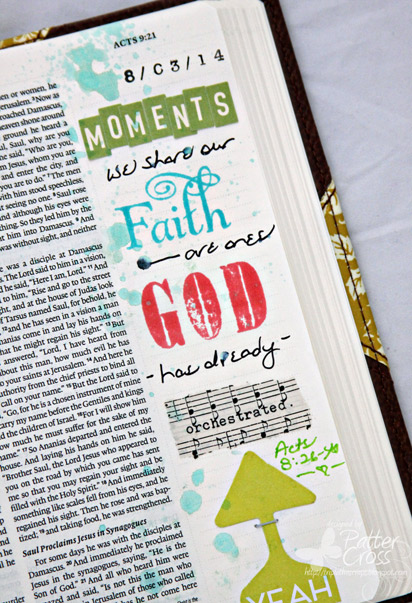 ACTS 9:21
8/03/14
MOMENTS
we share our
Faith
are ones
GOD
-has already-
orchestrated.
Acts
8:26-40
YEAH
men or women, he
Jerusalem. ³Now as
approached Damascus,
heaven shone around
ground he heard a
Saul, Saul, why are you
said, "Who are you,
am Jesus, whom you are
and enter the city, and
you are to do." ⁷The men
with him stood speechless,
seeing no one. ⁸Saul rose
and although his eyes were
So they led him by the
him into Damascus. ⁹And
was without sight, and neither
was a disciple at Damascus
The Lord said to him in a vision,
he said, "Here I am, Lord." ¹¹And
to him, "Rise and go to the street
, and at the house of Judas look
of Tarsus named Saul, for behold, he
and he has seen in a vision a man
Ananias come in and lay his hands on
that he might regain his sight." ¹³But
answered, "Lord, I have heard from
about this man, how much evil he has
to your saints at Jerusalem. ¹⁴And here he
authority from the chief priests to bind all
call on your name." ¹⁵But the Lord said to
"Go, for he is a chosen instrument of mine
carry my name before the Gentiles and kings
and the children of Israel. ¹⁶For I will show him
how much he must suffer for the sake of my
" ¹⁷So Ananias departed and entered the
house. And laying his hands on him he said,
"Brother Saul, the Lord Jesus who appeared to
you on the road by which you came has sent
me so that you may regain your sight and be
filled with the Holy Spirit." ¹⁸And immediately
something like scales fell from his eyes, and he
regained his sight. Then he rose and was bap-
tized; ¹⁹and taking food, he was strengthened.
Saul Proclaims Jesus in Synagogues
For some days he was with the disciples at
Damascus. ²⁰And immediately he proclaimed
Jesus in the synagogues, saying, "He is the
Son of God." ²¹And all who heard him were
and said, "Is not this the man who
in Jerusalem of those who called
has he not come here